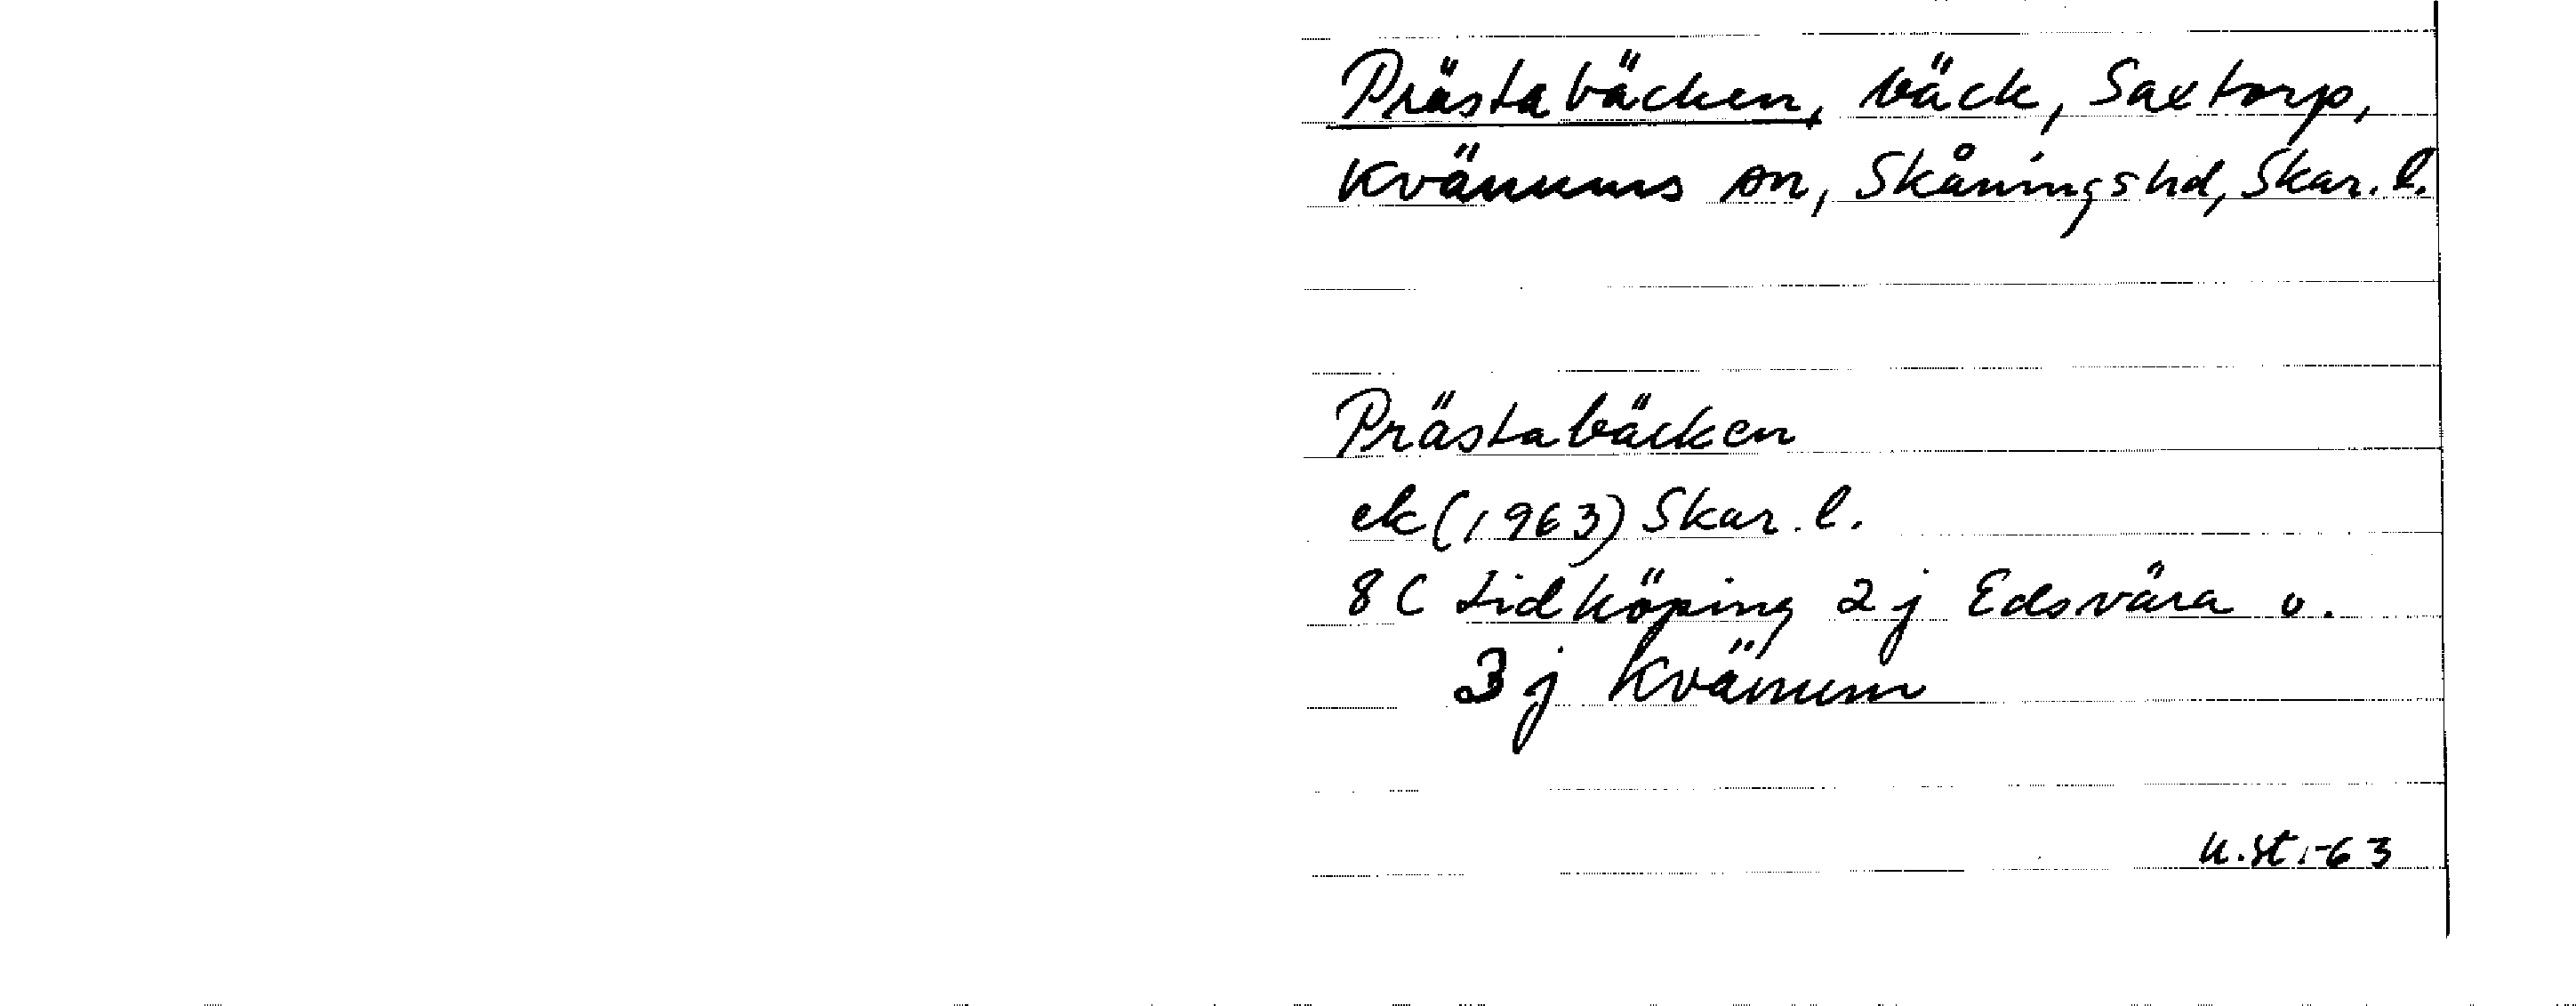 Prästabäcken, bäck, Saxtorp,
Kvänums sn, Skånings hd, Skar. l.
Prästabäcken
ek (1963) Skar. l.
8C Lidköping 2j Edsvära o.
3j Kvänum
u.st.-63